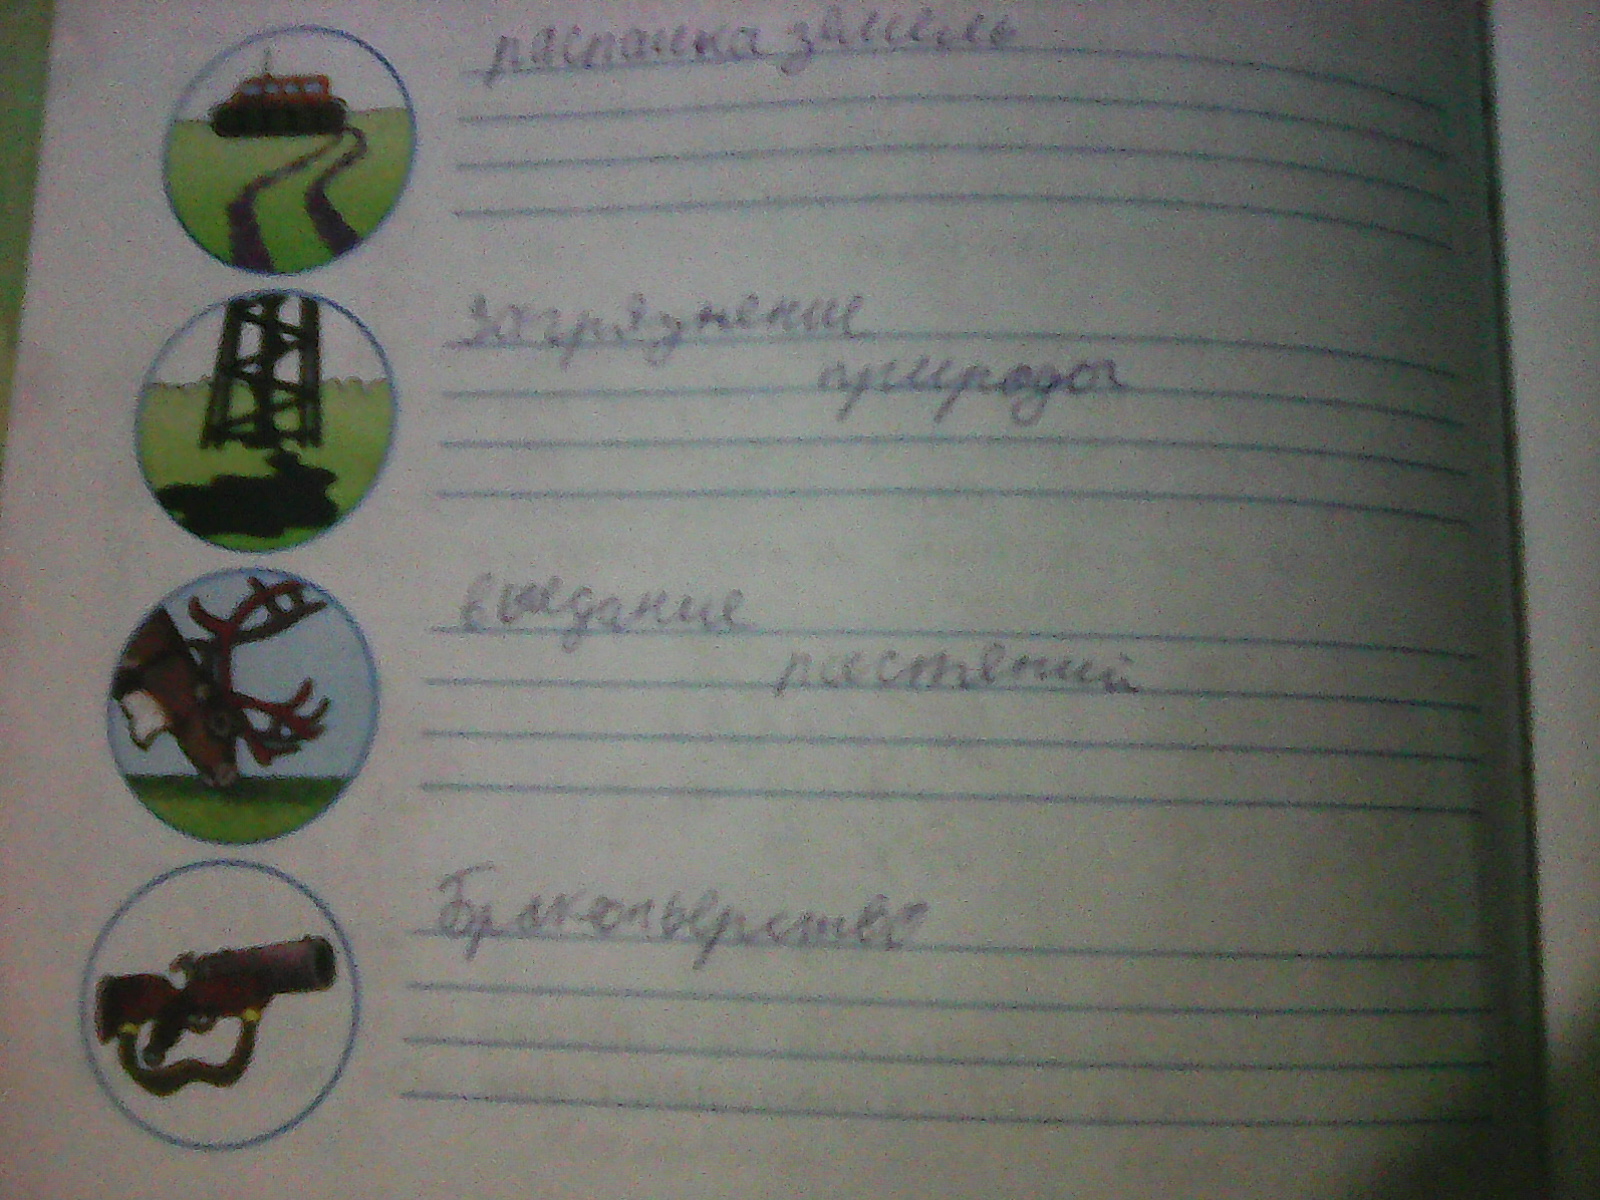 распашка земель
загрязнение
природы
выедание
растений
Броконьерство